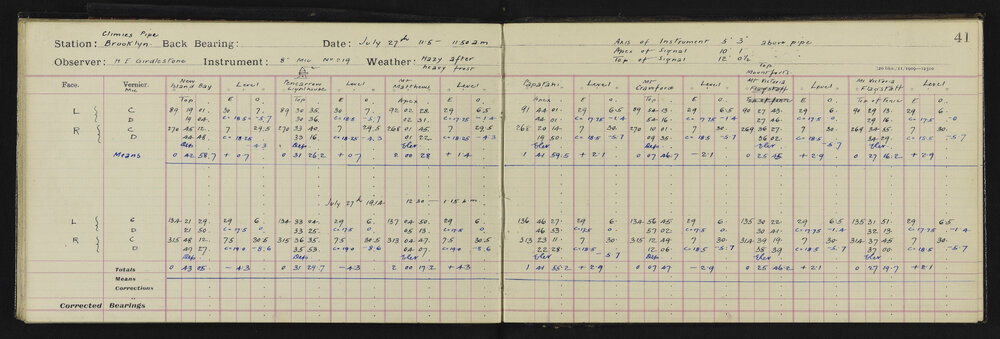 41
Climies Pipe
Station: Brooklyn. Back Bearing: Date: July 27th 11·5 - 11·50 am
Axis of Instrument 5' 3" above pipe
Apex of Signal 10' 1"
Top of Signal 12' 0½
Observer: H F Girdlestone Instrument: 8" Mic No 219 Weather: Hazy after heavy frost
[20 bks./11/1909—12500
Face. Vernier. Mic New Island Bay Level. Pencarrow Lighthouse Level. Mt Matthews Level. Paparahi Level. Mt Crawford Level. Top Mt Victoria Flagstaff Level. Mt Victoria Flagstaff Level.
Top E O. Top. E O. Apex E O. Apex E O. Top E O. E O. Top of fence E O.
L C 89 19 01. 30 7. 89 30 35 30 7. 92 02 28. 29 6.5 91 44 01. 29 6.5 90 29 13. 29 6.5
D 19 04. C=18.5 -5.7 30 36. C=18.5 -5.7 02 31. C=17.75 -1.4 44 01 C=17.75 -1.4 54 16. C=17.75 -1.4 27 46. C=17.5 0 29 16. C=17.5
R C 270 45 12. 7 29.5 270 33 40. 7 29.5 268 01 45 7 29.5 268 20 14. 7 30 270 10 01. 7 30 269 36 27. 7 30. 269 34 55 7 30
D 44 48. C=18.25 33 16. C=18.25 01 22. C=18.25 -4.3 19 50. C=18.5 -5.7 09 38. C=18.5 -5.7 36 02. C=18.5 -5.7 34 29. C=18.5 -5.7
Dep. -4.3 Dep. Elev Elev Dep. Elev Elev
Means 0 42 58.7 +0.7 0 31 26.2 +0.7 2 00 28 +1.4 1 41 59.5 +2.1 0 07 46.7 -2.1 0 25 45 +2.9 0 27 16.2 +2.9
July 27th 1914 12·30 - 1·15 pm.
L C 134 21 29. 29 6. 134 33 04. 29 6. 137 04 50. 29 6. 136 46 27. 29 6. 134 56 45 29 6. 135 30 22 29 6.5 135 31 51. 29 6.5
D 21 50. C=17.5 0 33 25. C=17.5 0 05 13. C=17.5 0. 46 53. C=17.5 0 57 02 C=17.5 0. 30 41. C=17.75 -1.4 32 13. C=17.75 -1.4
R C 315 48 12. 7.5 30.5 315 36 35. 7.5 30.5 313 04 47. 7.5 30.5 313 23 11. 7 30. 315 12 49 7 30. 314 39 19 7 30. 314 37 45 7 30.
D 47 27. C=19.0 -8.6 35 53. C=19.0 -8.6 04 07. C=19.0 -8.6 22 28. C=18.5 -5.7 12 06. C=18.5 -5.7 38 39 C=18.5 -5.7 37 00. C=18.5 -5.7
Dep. Dep. Elev Elev Dep. Elev Elev
Totals 0 43 05. -4.3 0 31 29.7 -4.3 2 00 17.2 +4.3 1 41 55.2 +2.9 0 07 47 -2.9 0 25 46.2 +2.1 0 27 19.7 +2.1
Means
Corrections
Corrected Bearings